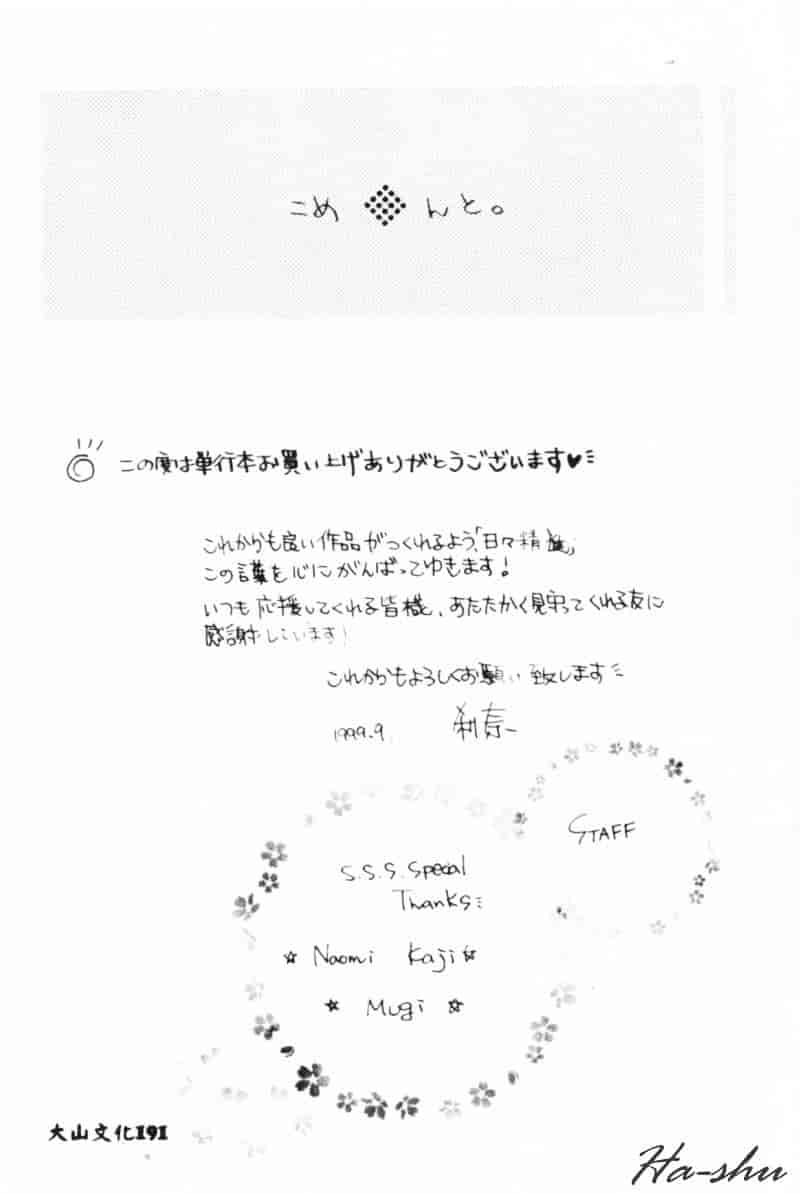 こめんと。
この度は単行本お買い上げありがとうございます♥
これからも良い作品がつくれるよう、「日々精進」
この言葉を心にがんばってゆきます!
いつも応援してくれる皆様と、あたたかく見守ってくれる友に
感謝しています!
これからもよろしくお願い致します
1999.9.
STAFF
S.S.S. Special
Thanks
☆ Naomi Kaji ☆
★ Mugi ☆
大山文化191
Ha-shu